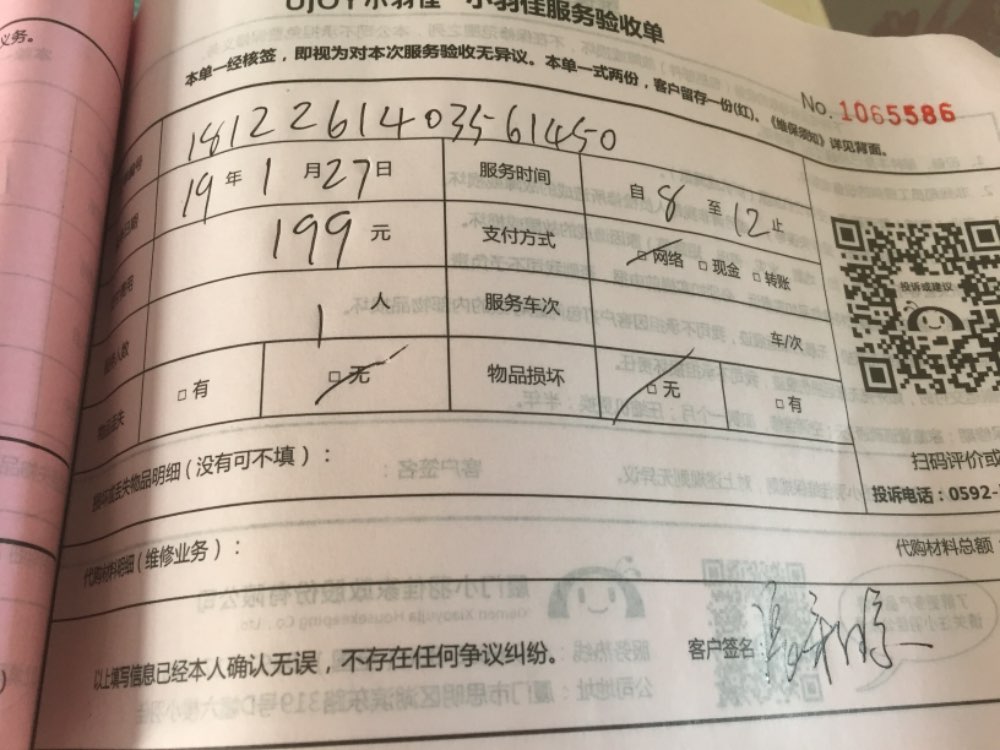 义务。
UJOY小羽佳 小羽佳服务验收单
本单一经核签，即视为对本次服务验收无异议。本单一式两份，客户留存一份(红)。《维保须知》详见背面。
No. 1065586
18122614035561450
19 年 1 月 27 日 服务时间 自 8 至 12 止
199 元 支付方式 □ 网络 □ 现金 □ 转账
1 人 服务车次 车/次
物品丢失 □ 有 □ 无 物品损坏 □ 无 □ 有
投诉或建议
损坏或丢失物品明细（没有可不填）：
扫码评价或
投诉电话：0592-
代购材料明细（维修业务）：
代购材料总额
以上填写信息已经本人确认无误，不存在任何争议纠纷。
客户签名